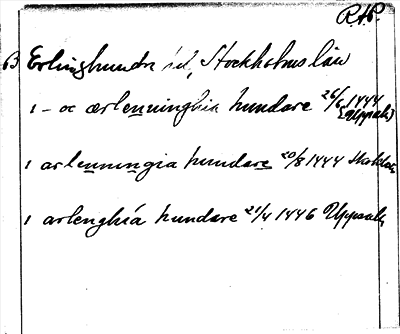 R.A.P.
B Erlinghundra hd, Stockholms län
1 – oc ærlenninghia hundare 26/6 1444 (Uppsala)
1 arlenningia hundare 20/8 1444
1 arlenghia hundare 21/4 1446 Uppsala